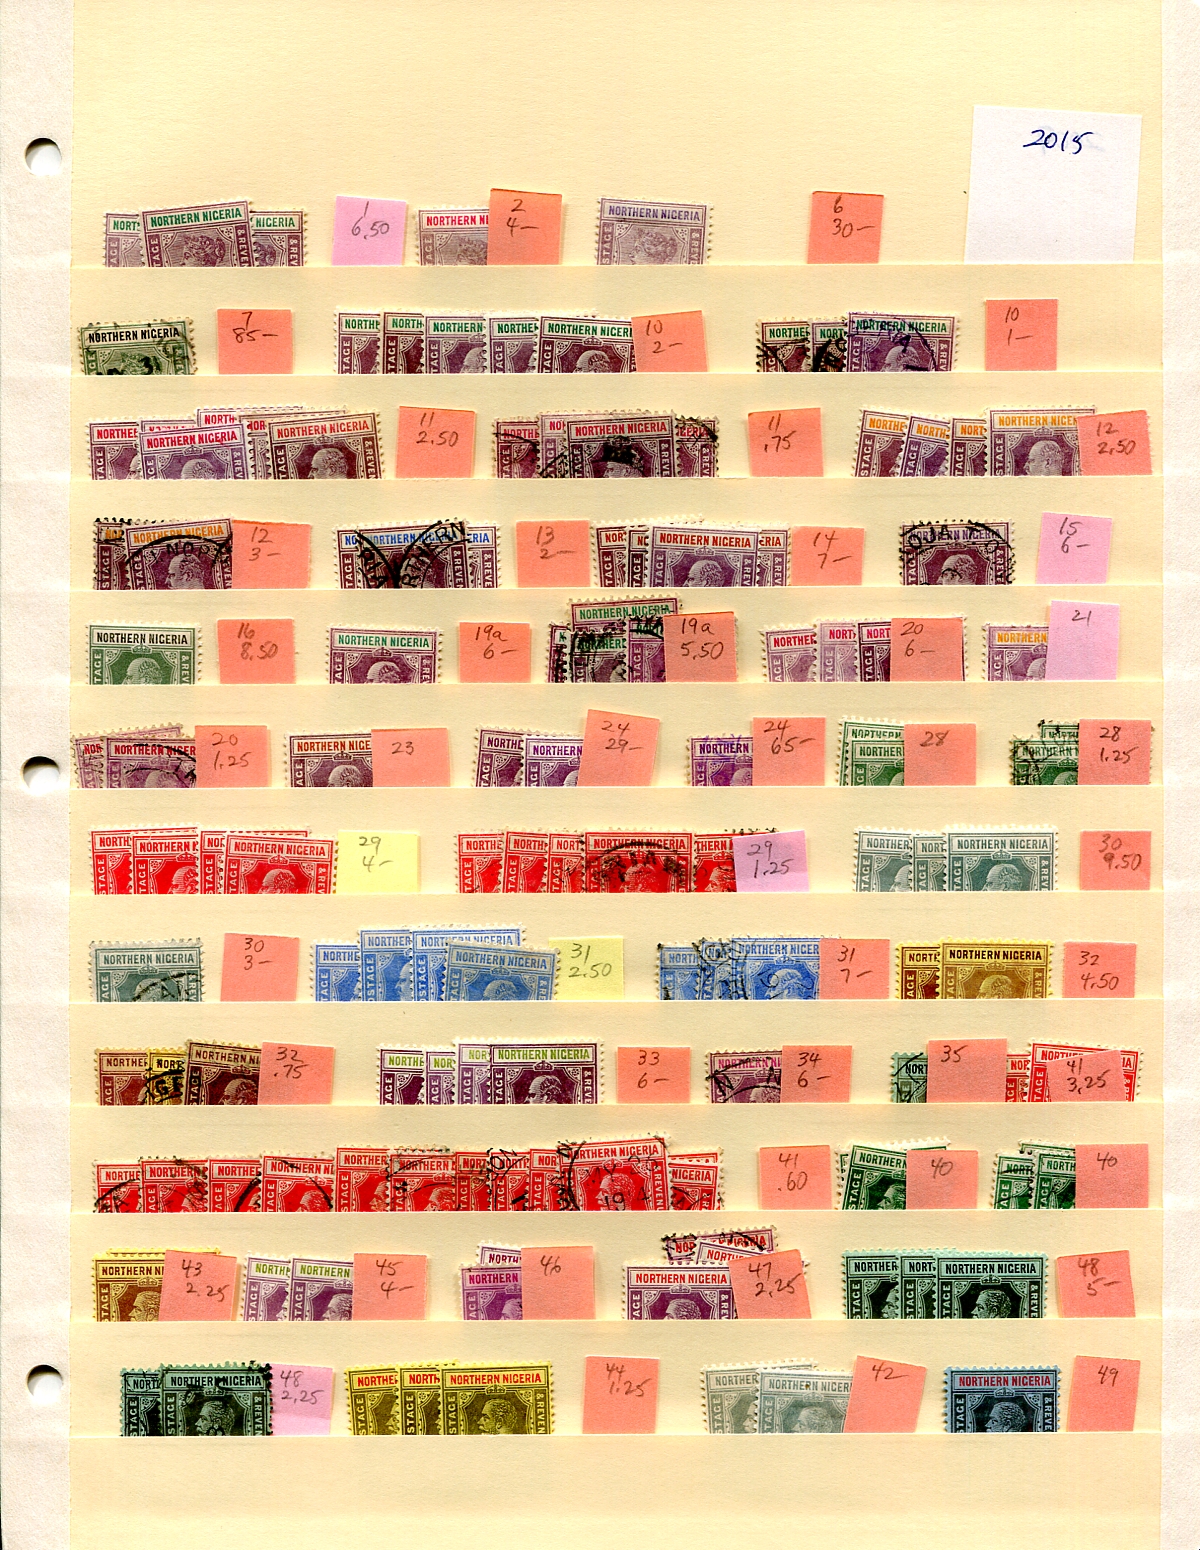 2015
NORTHERN NIGERIA
1
6.50
NORTHERN
2
4-
NORTHERN NIGERIA
6
30-
NORTHERN NIGERIA
7
85-
NORTHERN NIGERIA
10
2-
NORTHERN NIGERIA
10
1-
NORTHERN NIGERIA
NORTHERN NIGERIA
11
2.50
NORTHERN NIGERIA
11
.75
NORTHERN NIGERIA
12
2.50
NORTHERN NIGERIA
12
3-
13
2-
NORTHERN NIGERIA
14
7-
NORTHERN NIGERIA
15
6-
NORTHERN NIGERIA
16
8.50
NORTHERN NIGERIA
19a
6-
NORTHERN NIGERIA
19a
5.50
20
6-
21
20
1.25
23
24
29-
24
65-
28
28
1.25
NORTHERN NIGERIA
29
4-
NORTHERN NIGERIA
29
1.25
NORTHERN NIGERIA
30
9.50
NORTHERN NIGERIA
30
3-
NORTHERN NIGERIA
NORTHERN NIGERIA
31
2.50
31
7-
NORTHERN NIGERIA
32
4.50
32
.75
NORTHERN NIGERIA
33
6-
34
6-
35
NORTHERN NIGERIA
41
3.25
NORTHERN NIGERIA
41
.60
40
40
43
2.25
45
4-
46
NORTHERN NIGERIA
47
2.25
NORTHERN NIGERIA
48
5-
NORTHERN NIGERIA
48
2.25
NORTHERN NIGERIA
44
1.25
NORTHERN NIGERIA
42
NORTHERN NIGERIA
49